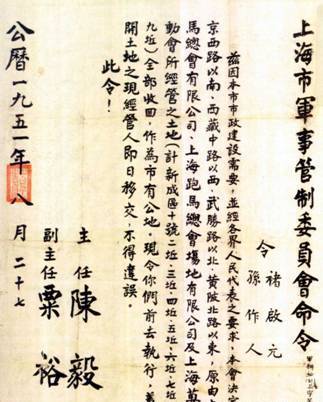 上海市軍事管制委員會命令
令
褚啟元
孫作人
茲因本市市政建設需要，並經各界人民代表之要求，本會決定
京西路以南、西藏中路以西、武勝路以北、黃陂北路以東，原由上
馬總會有限公司、上海跑馬總會場地有限公司及上海萬
動會所經管之土地（計新成區十號二坵、三坵、四坵、五坵、六坵、七坵
九坵）全部收回，作為市有公地。現令你們前去執行，並
關土地之現經管人即日移交，不得違誤。
此令！
主任 陳毅
副主任 粟裕
公曆一九五一年八月二十七